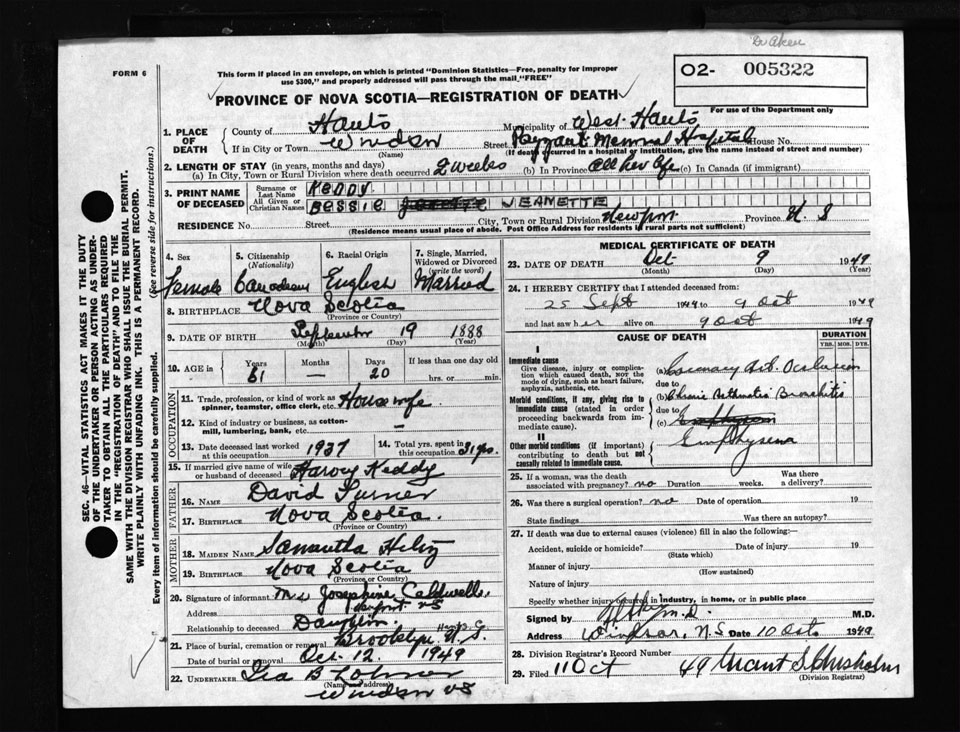 Dr Aker
FORM 6
This form if placed in an envelope, on which is printed "Dominion Statistics—Free, penalty for improper
use $300," and properly addressed will pass through the mail "FREE"
O2- 005322
PROVINCE OF NOVA SCOTIA—REGISTRATION OF DEATH
For use of the Department only
1. PLACE OF DEATH County of Hants Municipality of West Hants
If in City or Town Windsor Street Payzant Memorial Hospital House No.
(Name) (If death occurred in a hospital or institution, give the name instead of street and number)
2. LENGTH OF STAY (in years, months and days)
(a) In City, Town or Rural Division where death occurred 2 weeks (b) In Province All her life (c) In Canada (if immigrant)
3. PRINT NAME OF DECEASED Surname or Last Name KEDDY
All Given or Christian Names BESSIE JEANETTE
RESIDENCE No. Street City, Town or Rural Division Newport Province N S
(Residence means usual place of abode. Post Office Address for residents in rural parts not sufficient)
4. Sex Female
5. Citizenship (Nationality) Canadian
6. Racial Origin English
7. Single, Married, Widowed or Divorced (write the word) Married
8. BIRTHPLACE Nova Scotia
(Province or Country)
9. DATE OF BIRTH September 19 1888
(Month) (Day) (Year)
10. AGE in Years 61 Months — Days 20 If less than one day old hrs. or min.
OCCUPATION
11. Trade, profession or kind of work as spinner, teamster, office clerk, etc. Housewife
12. Kind of industry or business, as cotton-mill, lumbering, bank, etc. —
13. Date deceased last worked at this occupation 1937
14. Total yrs. spent in this occupation 31 yrs.
15. If married give name of wife or husband of deceased Harvey Keddy
FATHER
16. NAME David Turner
17. BIRTHPLACE Nova Scotia.
(Province or Country)
MOTHER
18. MAIDEN NAME Samantha
19. BIRTHPLACE Nova Scotia
(Province or Country)
20. Signature of informant Mrs Josephine Caldwell.
Address Newport NS
Relationship to deceased Daughter. Hants Co.
21. Place of burial, cremation or removal Brooklyn, N.S.
Date of burial or removal Oct. 12, 1949
22. UNDERTAKER Ira B
(Name and address) Windsor NS
MEDICAL CERTIFICATE OF DEATH
23. DATE OF DEATH Oct 9 1949
(Month) (Day) (Year)
24. I HEREBY CERTIFY that I attended deceased from:
25 Sept 1949 to 9 Oct 1949
and last saw her alive on 9 Oct 1949
CAUSE OF DEATH
DURATION
YRS. MOS. DYS.
I
Immediate cause
Give disease, injury or complication which caused death, not the mode of dying, such as heart failure, asphyxia, asthenia, etc.
(a) Coronary Art. Occlusion
due to
Morbid conditions, if any, giving rise to immediate cause (stated in order proceeding backwards from immediate cause).
(b) Chronic Asthmatic Bronchitis
due to
(c) Emphysema
II
Other morbid conditions (if important) contributing to death but not causally related to immediate cause.
Emphysema
25. If a woman, was the death associated with pregnancy? no Duration weeks. Was there a delivery?
26. Was there a surgical operation? no Date of operation 19
State findings Was there an autopsy?
27. If death was due to external causes (violence) fill in also the following:
Accident, suicide or homicide? Date of injury 19
(State which)
Manner of injury
(How sustained)
Nature of injury
Specify whether injury occurred in industry, in home, or in public place
Signed by M.D. M.D.
Address Windsor, N.S Date 10 Oct 1949
28. Division Registrar's Record Number
29. Filed 11 Oct 49 Grant S. Chisholm
(Division Registrar)
SEC. 46—VITAL STATISTICS ACT MAKES IT THE DUTY
OF THE UNDERTAKER OR PERSON ACTING AS UNDER-
TAKER TO OBTAIN ALL THE PARTICULARS REQUIRED
IN THE "REGISTRATION OF DEATH" AND TO FILE THE
SAME WITH THE DIVISION REGISTRAR WHO SHALL ISSUE THE BURIAL PERMIT.
WRITE PLAINLY WITH UNFADING INK. THIS IS A PERMANENT RECORD.
Every item of information should be carefully supplied. (See reverse side for instructions.)